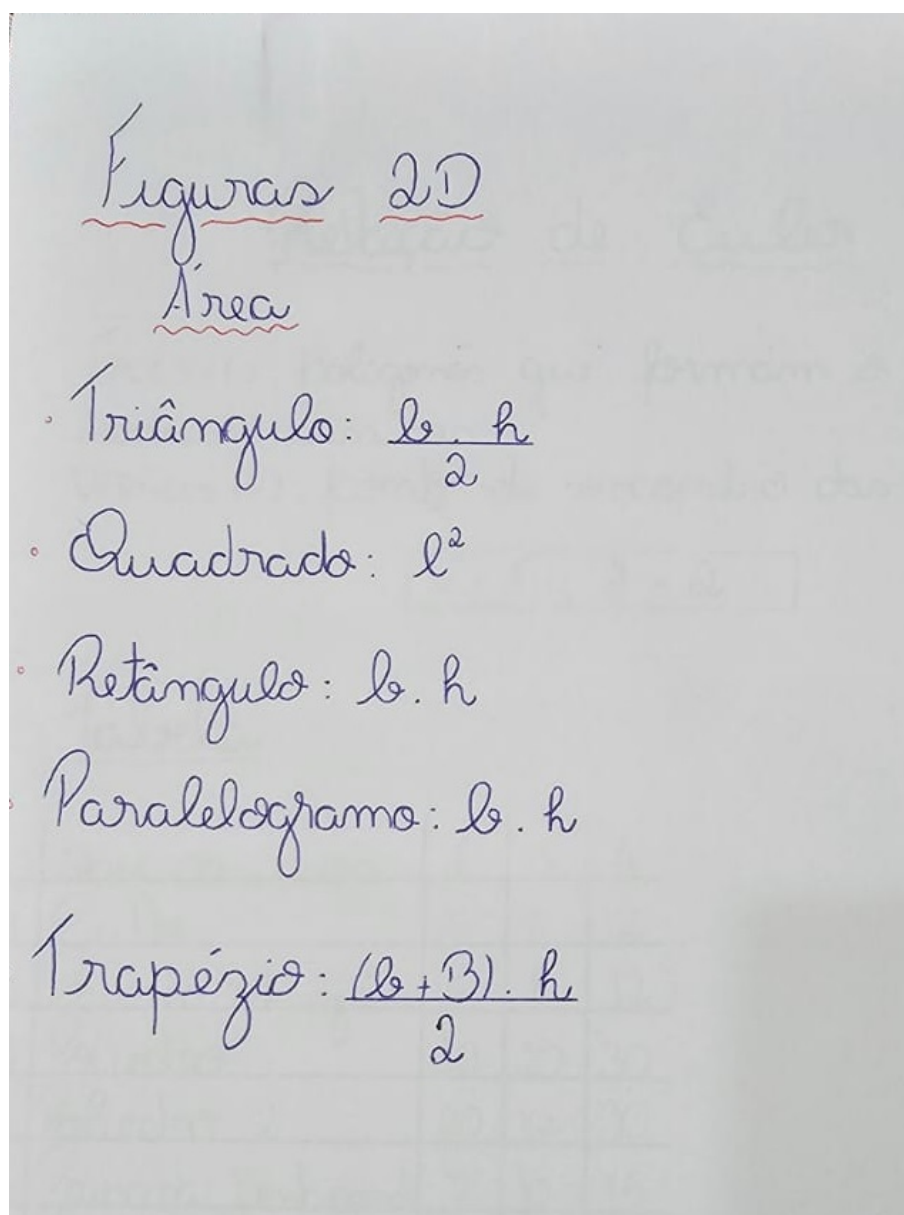 Figuras 2D
Área
Triângulo: b . h / 2
Quadrado: l²
Retângulo: b . h
Paralelogramo: b . h
Trapézio: (b + B) . h / 2
Relação de Euler